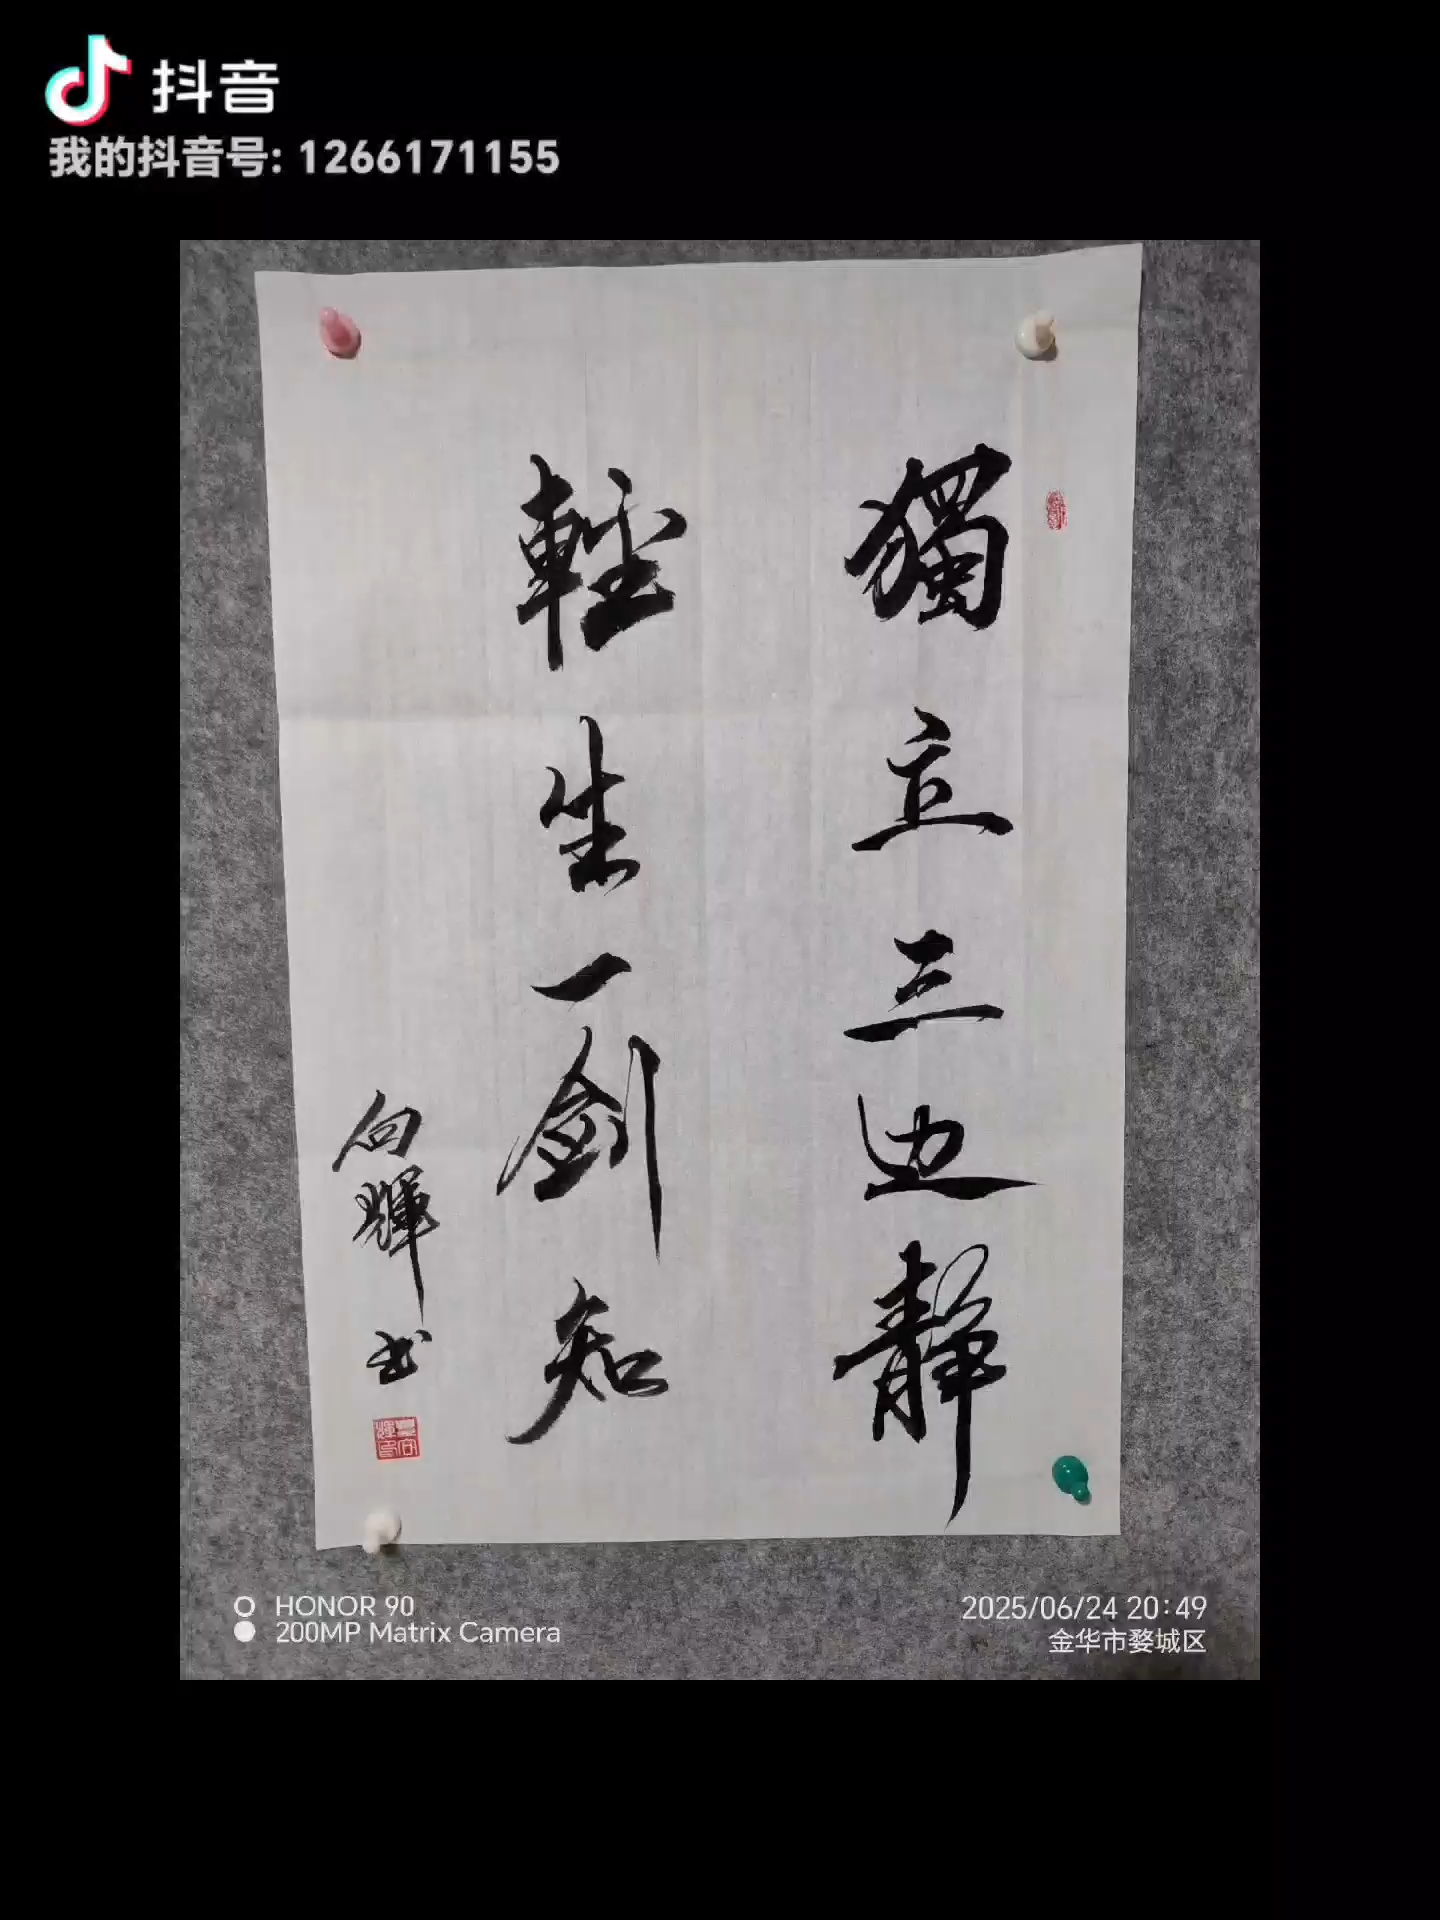 抖音
我的抖音号: 1266171155
獨立三边靜
輕生一剑知
向輝书
HONOR 90
200MP Matrix Camera
2025/06/24 20:49
金华市婺城区